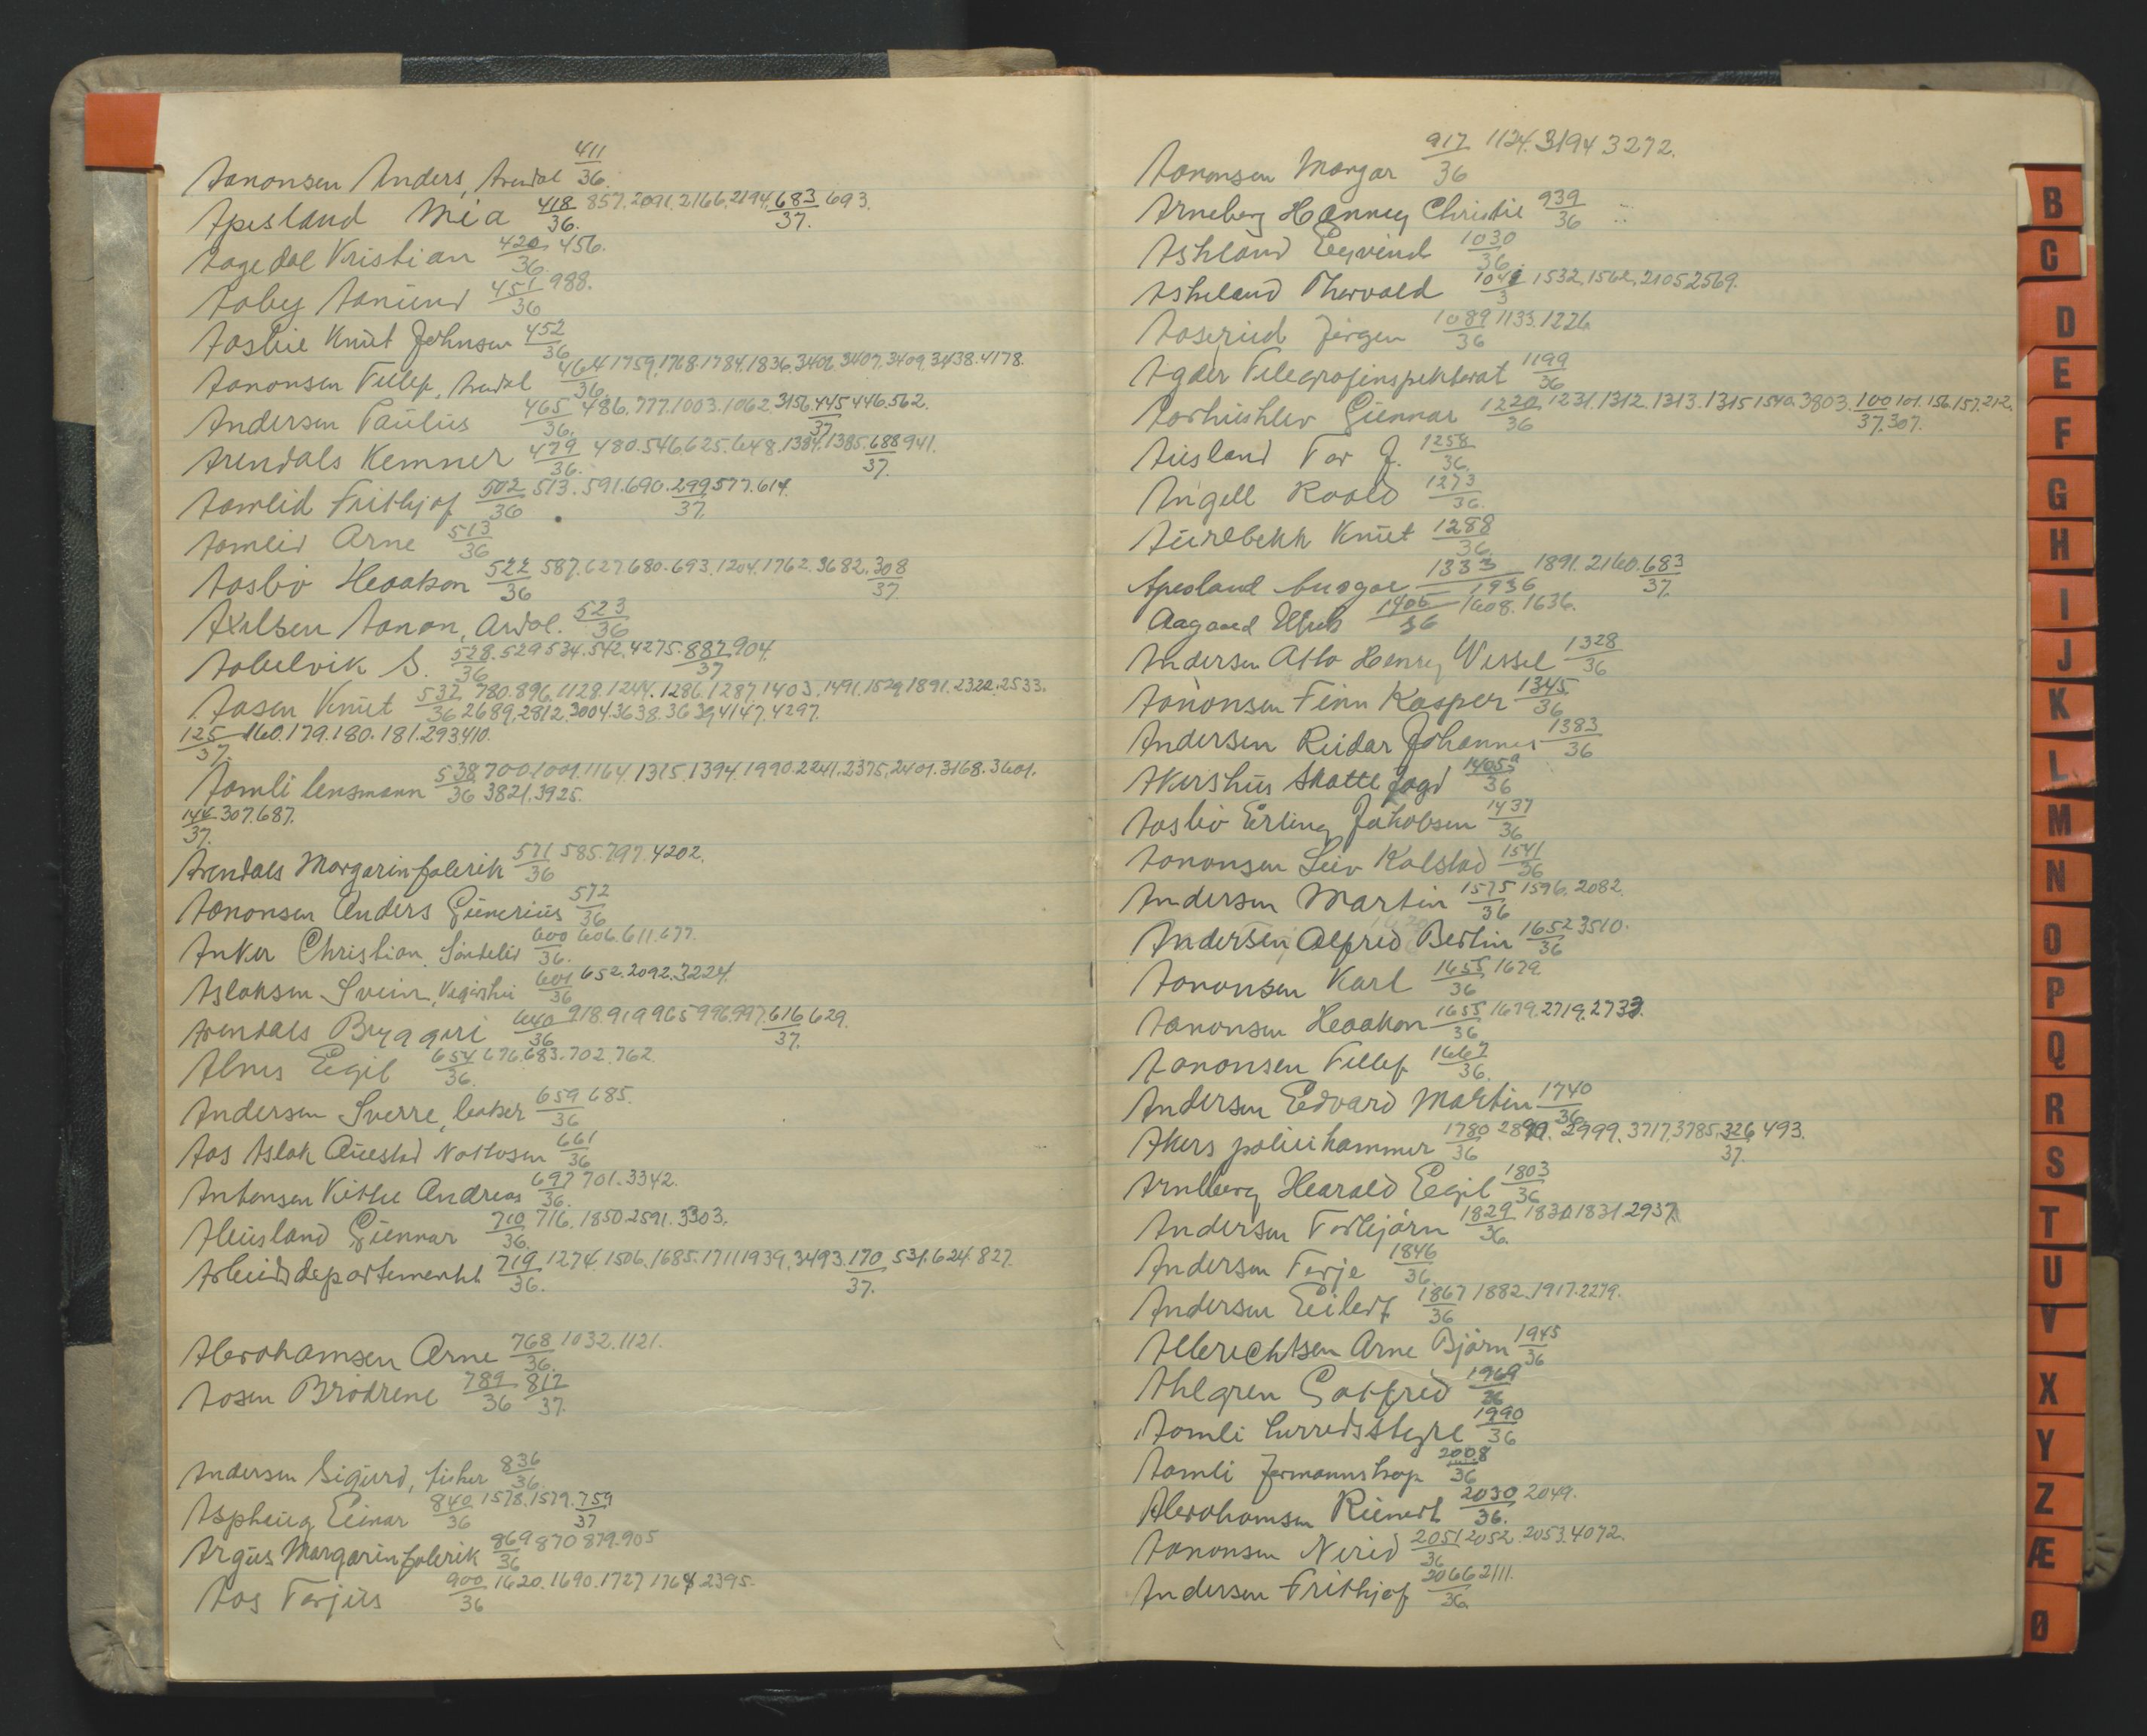 Aanonsen Anders, Arendal 411/36.
Apesland Mia 418/36. 857. 2091. 2166. 2194. 683/37. 693.
Aagedal Kristian 420/36. 456.
Aaby Aanund 451/36 988.
Aasbie Knut Johnsen 452/36
Aanonsen Tellef, Arendal 464/36. 1759. 1768. 1784. 1836. 3406. 3407. 3409. 3438. 4178.
Andersen Paulus 465/36. 486. 777. 1003. 1062. 3156. 445/37 446. 562.
Arendals Kemner 479/36. 480. 546. 625. 648. 1384. 1385. 688/37. 941.
Aamlid Frithjof 502/36 513. 591. 690. 299/37. 577. 614.
Aamlid Arne 513/36
Aasbö Haakon 522/36 587. 627 680. 693. 1204. 1762. 3682. 308/37.
Axelsen Aanon, Ardal. 523/36
Aabelvik S. 528/36. 529 534. 542. 4275. 887/37 904.
Aasen Knut 532/36 780. 896. 1128. 1244. 1286. 1287. 1403. 1491. 1529. 1891. 2322. 2533.
2689. 2812. 3004. 3638. 3639. 4147. 4297.
125/37. 160. 179. 180. 181. 293. 410.
Aamli lensmann 538/36 700. 1001. 1164. 1315. 1394. 1990. 2241. 2375. 2401. 3168. 3601.
3821. 3925.
144/37. 307. 687.
Arendals Margarinfabrik 571/36 585. 797. 4202.
Aanonsen Anders Gunerius 572/36
Anker Christian, Söndeled 600/36. 606. 611. 677.
Aslaksen Svein, Vegårshei 601/36 652. 2092. 3224.
Arendals Bryggeri 640/36 918. 919 965 996. 997. 616/37. 629.
Alnes Egil 654/36. 676. 683. 702. 762.
Andersen Sverre, baker 659/36 685.
Aas Aslak Auestad 661/36
Antonsen Kittil Andreas 697/36. 701. 3342.
Aleusland Gunnar 710/36. 716. 1850. 2591. 3303.
Arbeidsdepartementet 719/36. 1274. 1506. 1685. 1711 1939. 3493. 170/37. 531. 624. 827.
Abrahamsen Arne 768/36. 1032. 1121.
Aasen Brödrene 789/36 817/37.
Andersen Sigurd, fisker 836/36.
Asphaug Einar 840/36 1578. 1579. 759/37
Argus Margarinfabrik 869/36 870 879. 905
Aas Tarjus 900/36 1620. 1690. 1727 1764 2395.
Aanonsen Margar 917/36 1124. 3194 3272.
Arneberg Hanney Christie 939/36
Askland Eyvind 1030/36.
Askeland Thorvald 1041/3 1532. 1562. 2105 2569.
Aaserud Jörgen 1089/36 1133. 1226.
Agder Telegrafinspektorat 1199/36
Aarhushlev Gunnar 1220/36 1231. 1312. 1313. 1315 1540. 3803. 100/37. 101. 156. 157. 212.
307.
Ausland Tor J. 1258/36.
Angell Roald 1273/36.
Aurebekk Knut 1288/36.
Apesland Ansgar 1333/1936 1891. 2160. 683/37.
Aagaard 1405/36 1608. 1636.
Andersen Atlo Henry Wessel 1328/36
Aanonsen Finn Kasper 1345/36
Andersen Reidar Johannes 1383/36
Akershus Skattefogd 1405a/36
Aasbö Erling Jakobsen 1437/36
Aanonsen Leiv Kalstad 1541/36
Andersen Martin 1575/36 1596. 2082.
Andersen, Alfred Bertin 1652/36 3510.
Aanonsen Karl 1655/36 1679.
Aanonsen Haakon 1655/36 1679. 2719. 2733.
Aanonsen Tellef 1667/36.
Andersen Edvard Martin 1740/36.
Akers politikammer 1780/36 2899. 2999. 3717. 3785. 326/37. 493.
Arneberg Harald Egil 1803/36
Andersen Torbjörn 1829/36. 1830 1831 2937.
Andersen Terje 1846/36.
Andersen Eilert 1867/36 1882. 1917. 2279.
Albrechtsen Arne Björn 1945/36
Ahlgren Gotfred 1969/36
Aamli herredsstyre 1990/36
Aamli formannskap 2008/36
Abrahamsen Reinert 2030/36. 2049.
Aanonsen Nerid 2051/36 2052. 2053. 4072.
Andersen Frithjof 2066/36. 2111.
B
C
D
E
F
G
H
I
J
K
L
M
N
O
P
Q
R
S
T
U
V
X
Y
Z
Æ
Ø